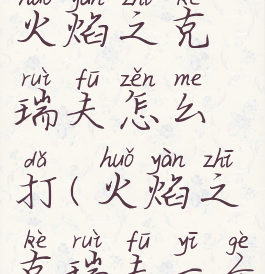 huǒ yàn zhī kè
火焰之克
ruì fū zěn me
瑞夫怎么
dǎ huǒ yàn zhī
打(火焰之
kè ruì fū yī gè
克瑞夫一个